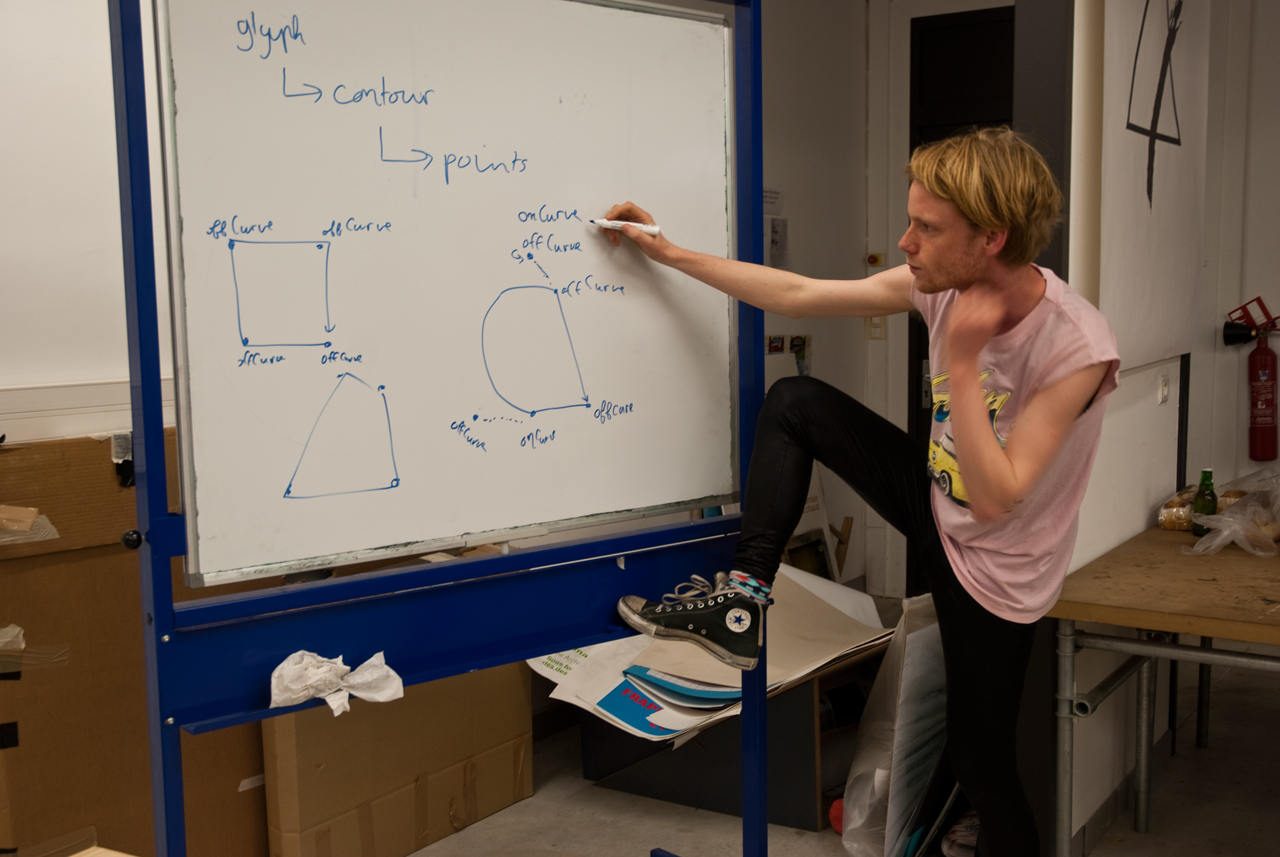 glyph
contour
points
offCurve
offCurve
offCurve
offCurve
onCurve
offCurve
offCurve
offCurve
onCurv
offCurve
FRAP